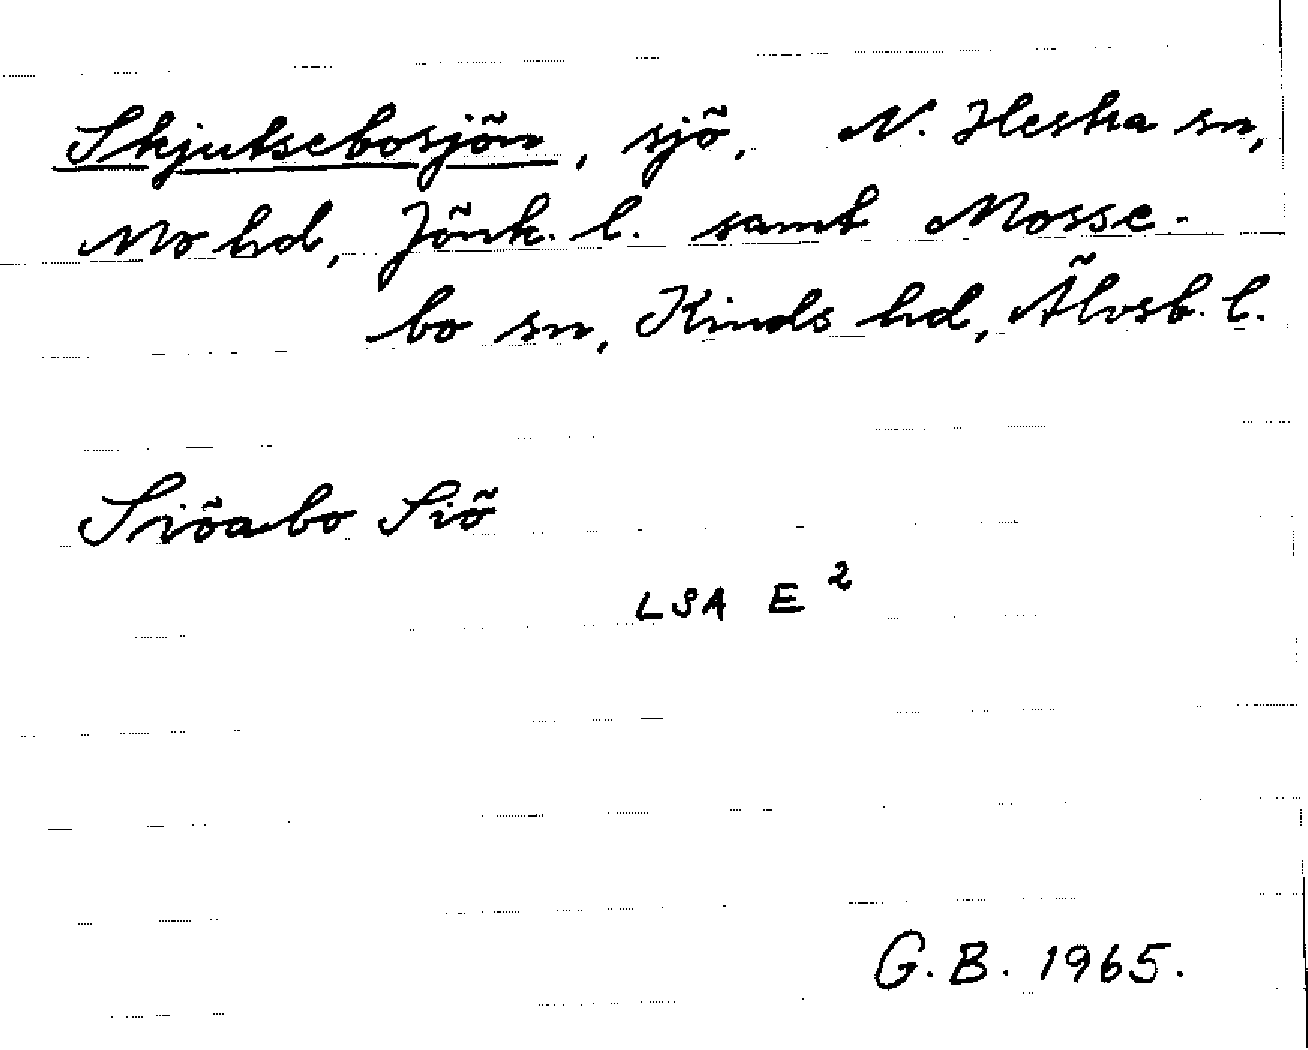 Skjutsebosjön, sjö, N. Hestra sn,
Mo hd, Jönk. l. samt Mosse-
bo sn, Kinds hd, Älvsb. l.
Siöabo Siö
LSA E²
G. B. 1965.